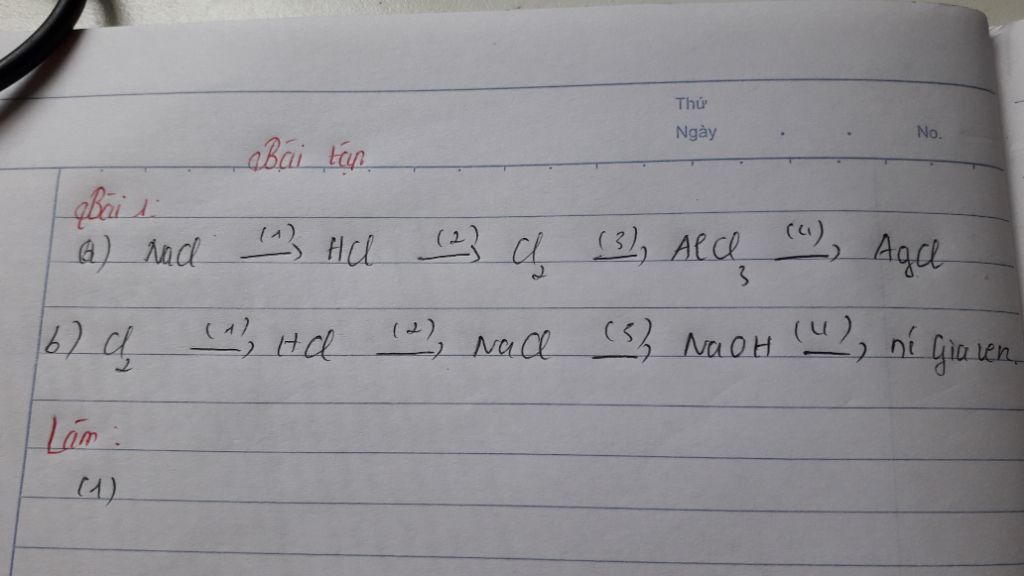 Thứ
Ngày . . No.
Bài tập
Bài 1:
a) NaCl (1)→ HCl (2)→ Cl₂ (3)→ AlCl₃ (4)→ AgCl
b) Cl₂ (1)→ HCl (2)→ NaCl (3)→ NaOH (4)→ ní Giaven.
Làm:
(1)